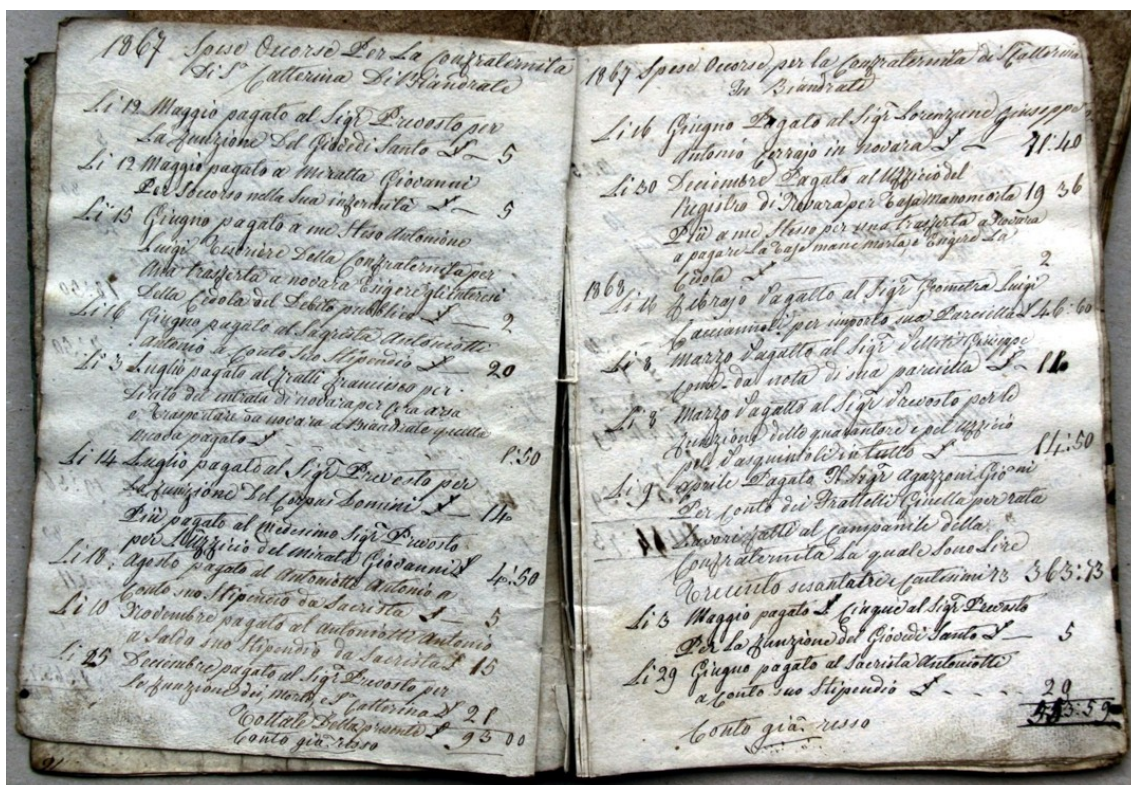 1867 Spese Occorse Per La Confraternita
Di S.ta Catterina Di Biandrate
Li 12 Maggio pagato al Sigr Prevosto per
La funzione Del Giovedi Santo £ — 5
Li 12 Maggio pagato a Miralta Giovanni
Per Socorso nella Sua infermità £ — 5
Li 15 Giugno pagato a me Steso Antonione
Luigi Tesoriere Della Confraternita per
una trasferta a novara Esigere gli interesi
Della Cedola del Debito pubblico £ — 2
Li 16 Giugno pagato al Sagrista Antoniotti
Antonio a Conto suo Stipendio £ — 20
Li 3 Luglio pagato al fratti francesco per
Dicato del entrata di novara per Cera arsa
o Trasportare da novara a Biandrate quella
nuova pagato £ 1:50
Li 14 Luglio pagato al Sigr Prevosto per
La funzione Del Corpus Domini £ — 14
Più pagato al medesimo Sigr Prevosto
per L'uffizio del Miralta Giovanni £ 4:50
Li 18 Agosto pagato al Antoniotti Antonio a
Conto suo Stipendio da Sacrista £ — 5
Li 10 Novembre pagato al Antoniotti Antonio
a Saldo suo Stipendio da Sacrista £ 15
Li 25 Decembre pagato al Sigr Prevosto per
Le funzione dei Morti, e S. Catterina £ 21
Tottale Della presente £ 93 00
Conto già resso
1867 Spese Occorse per la Confraternita di S. Catterina
In Biandrate
Li 16 Giugno Pagato al Sigr Lorenzone Giuseppe
Antonio Cerrajo in novara £ — 71:40
Li 30 Deciembre Pagato al Ufficio del
Registro di Novara per Tasa Manomorta 19 36
Più a me Stesso per una trasferta a Novara
a pagare La tasa mane morta, e Esigere La
Cedola £ 2
1868
Li 16 Febrajo Pagatto al Sigr Geometra Luigi
per importo sua Parciella £ 46:60
Li 8 Marzo Pagatto al Sigr Giuseppe
Come da nota di sua parciella £ — 11
Li 8 Marzo Pagatto al Sigr Prevosto per le
funzione delle quarantore e pel uffizio
pel in tutto £ — 14:50
Li 9 Aprile Pagato Il Sigr Agazzoni Gioni
Per Conto dei Frattelli Ginella per rata
Lavori fatti al Campanile della
Confraternita La quale Sono Lire
Trecento sesantatre e Centesimi 73 363:73
Li 3 Maggio pagato £ Cinque al Sigr Prevosto
Per La funzione del Giovedi Santo £ — 5
Li 29 Giugno pagato al Sacrista Antoniotti
a Conto suo Stipendio £ 20
553:59
Conto già resso